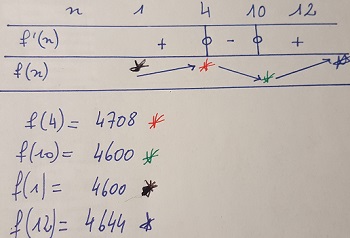 n 1 4 10 12
f'(n) + 0 - 0 +
f(n)
f(4) = 4708
f(10) = 4600
f(1) = 4600
f(12) = 4644